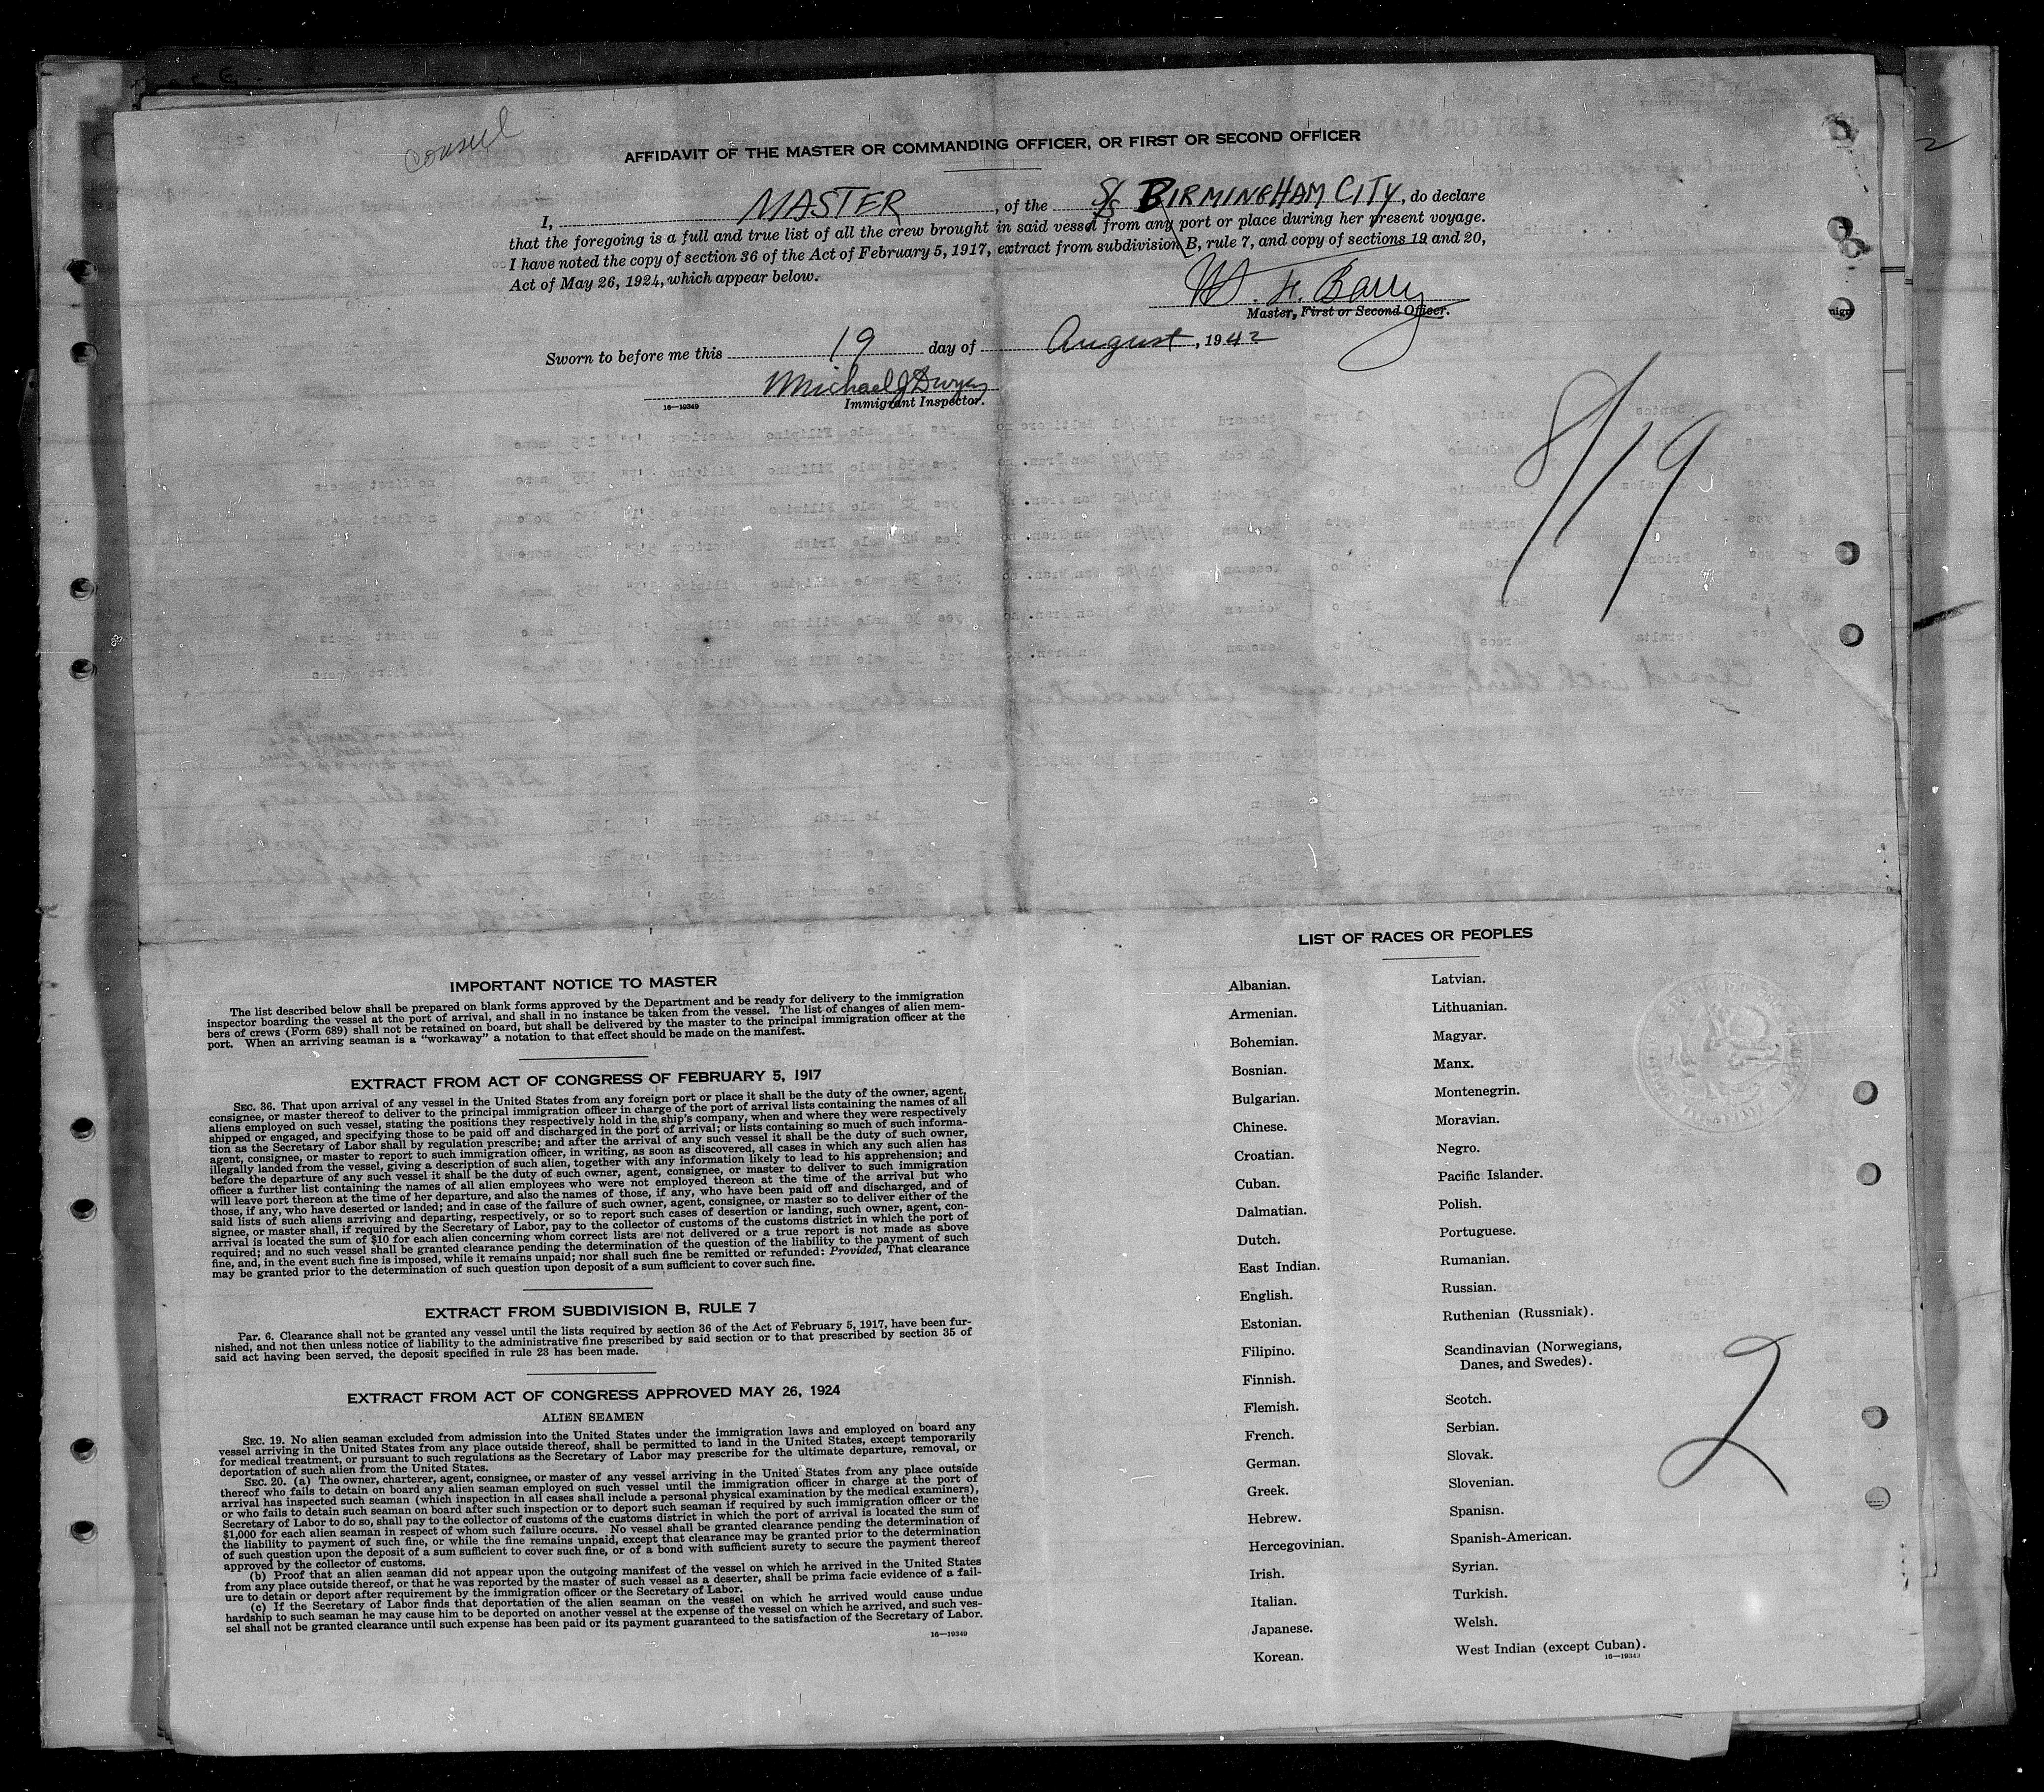 consul
AFFIDAVIT OF THE MASTER OR COMMANDING OFFICER, OR FIRST OR SECOND OFFICER
I, MASTER, of the S/S BIRMINGHAM CITY, do declare
that the foregoing is a full and true list of all the crew brought in said vessel from any port or place during her present voyage.
I have noted the copy of section 36 of the Act of February 5, 1917, extract from subdivision B, rule 7, and copy of sections 19 and 20,
Act of May 26, 1924, which appear below.
W. F. Barry
Master, First or Second Officer.
Sworn to before me this 19 day of August, 1942
Michael J Dwyer
16—19349 Immigrant Inspector.
8/19
IMPORTANT NOTICE TO MASTER
The list described below shall be prepared on blank forms approved by the Department and be ready for delivery to the immigration
inspector boarding the vessel at the port of arrival, and shall in no instance be taken from the vessel. The list of changes of alien mem-
bers of crews (Form 689) shall not be retained on board, but shall be delivered by the master to the principal immigration officer at the
port. When an arriving seaman is a "workaway" a notation to that effect should be made on the manifest.
EXTRACT FROM ACT OF CONGRESS OF FEBRUARY 5, 1917
SEC. 36. That upon arrival of any vessel in the United States from any foreign port or place it shall be the duty of the owner, agent,
consignee, or master thereof to deliver to the principal immigration officer in charge of the port of arrival lists containing the names of all
aliens employed on such vessel, stating the positions they respectively hold in the ship's company, when and where they were respectively
shipped or engaged, and specifying those to be paid off and discharged in the port of arrival; or lists containing so much of such informa-
tion as the Secretary of Labor shall by regulation prescribe; and after the arrival of any such vessel it shall be the duty of such owner,
agent, consignee, or master to report to such immigration officer, in writing, as soon as discovered, all cases in which any such alien has
illegally landed from the vessel, giving a description of such alien, together with any information likely to lead to his apprehension; and
before the departure of any such vessel it shall be the duty of such owner, agent, consignee, or master to deliver to such immigration
officer a further list containing the names of all alien employees who were not employed thereon at the time of the arrival but who
will leave port thereon at the time of her departure, and also the names of those, if any, who have been paid off and discharged, and of
those, if any, who have deserted or landed; and in case of the failure of such owner, agent, consignee, or master so to deliver either of the
said lists of such aliens arriving and departing, respectively, or so to report such cases of desertion or landing, such owner, agent, con-
signee, or master shall, if required by the Secretary of Labor, pay to the collector of customs of the customs district in which the port of
arrival is located the sum of $10 for each alien concerning whom correct lists are not delivered or a true report is not made as above
required; and no such vessel shall be granted clearance pending the determination of the question of the liability to the payment of such
fine, and, in the event such fine is imposed, while it remains unpaid; nor shall such fine be remitted or refunded: Provided, That clearance
may be granted prior to the determination of such question upon deposit of a sum sufficient to cover such fine.
EXTRACT FROM SUBDIVISION B, RULE 7
Par. 6. Clearance shall not be granted any vessel until the lists required by section 36 of the Act of February 5, 1917, have been fur-
nished, and not then unless notice of liability to the administrative fine prescribed by said section or to that prescribed by section 35 of
said act having been served, the deposit specified in rule 23 has been made.
EXTRACT FROM ACT OF CONGRESS APPROVED MAY 26, 1924
ALIEN SEAMEN
SEC. 19. No alien seaman excluded from admission into the United States under the immigration laws and employed on board any
vessel arriving in the United States from any place outside thereof, shall be permitted to land in the United States, except temporarily
for medical treatment, or pursuant to such regulations as the Secretary of Labor may prescribe for the ultimate departure, removal, or
deportation of such alien from the United States.
SEC. 20. (a) The owner, charterer, agent, consignee, or master of any vessel arriving in the United States from any place outside
thereof who fails to detain on board any alien seaman employed on such vessel until the immigration officer in charge at the port of
arrival has inspected such seaman (which inspection in all cases shall include a personal physical examination by the medical examiners),
or who fails to detain such seaman on board after such inspection or to deport such seaman if required by such immigration officer or the
Secretary of Labor to do so, shall pay to the collector of customs of the customs district in which the port of arrival is located the sum of
$1,000 for each alien seaman in respect of whom such failure occurs. No vessel shall be granted clearance pending the determination of
the liability to payment of such fine, or while the fine remains unpaid, except that clearance may be granted prior to the determination
of such question upon the deposit of a sum sufficient to cover such fine, or of a bond with sufficient surety to secure the payment thereof
approved by the collector of customs.
(b) Proof that an alien seaman did not appear upon the outgoing manifest of the vessel on which he arrived in the United States
from any place outside thereof, or that he was reported by the master of such vessel as a deserter, shall be prima facie evidence of a fail-
ure to detain or deport after requirement by the immigration officer or the Secretary of Labor.
(c) If the Secretary of Labor finds that deportation of the alien seaman on the vessel on which he arrived would cause undue
hardship to such seaman he may cause him to be deported on another vessel at the expense of the vessel on which he arrived, and such ves-
sel shall not be granted clearance until such expense has been paid or its payment guaranteed to the satisfaction of the Secretary of Labor.
16—19349
LIST OF RACES OR PEOPLES
Albanian.
Armenian.
Bohemian.
Bosnian.
Bulgarian.
Chinese.
Croatian.
Cuban.
Dalmatian.
Dutch.
East Indian.
English.
Estonian.
Filipino.
Finnish.
Flemish.
French.
German.
Greek.
Hebrew.
Hercegovinian.
Irish.
Italian.
Japanese.
Korean.
Latvian.
Lithuanian.
Magyar.
Manx.
Montenegrin.
Moravian.
Negro.
Pacific Islander.
Polish.
Portuguese.
Rumanian.
Russian.
Ruthenian (Russniak).
Scandinavian (Norwegians,
Danes, and Swedes).
Scotch.
Serbian.
Slovak.
Slovenian.
Spanish.
Spanish-American.
Syrian.
Turkish.
Welsh.
West Indian (except Cuban).
16—19349
2
2